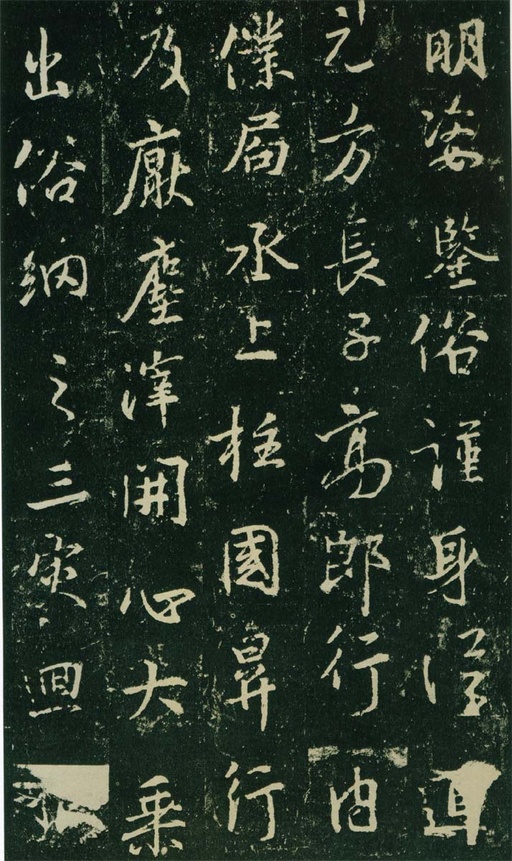 明姿鑒俗謹身道
元方長子高郎行內
僕局丞上柱國昇行
及厭塵滓開心大乘
出俗納之三